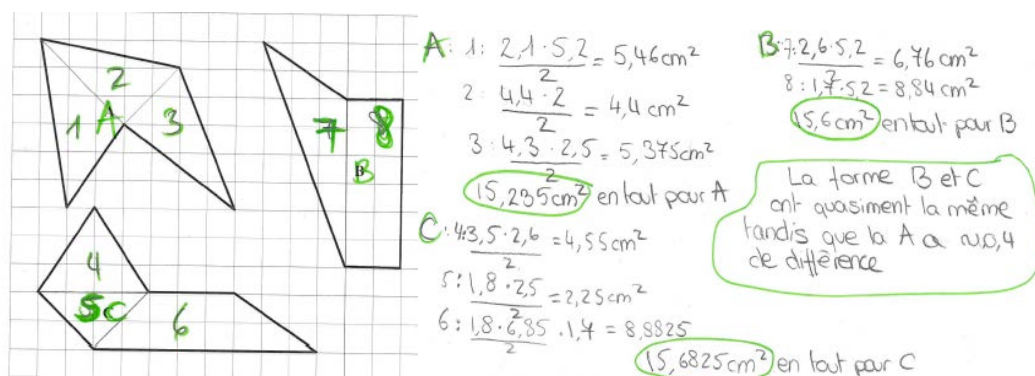 1
2
A
3
4
5C
6
7
8
B
A: 1: 2,1 · 5,2 / 2 = 5,46 cm²
2: 4,4 · 2 / 2 = 4,4 cm²
3: 4,3 · 2,5 / 2 = 5,375 cm²
15,235 cm² en tout pour A
C: 4: 3,5 · 2,6 / 2 = 4,55 cm²
5: 1,8 · 2,5 / 2 = 2,25 cm²
6: 1,8 · 6,85 / 2 · 1,7 = 8,8825
15,6825 cm² en tout pour C
B: 7: 2,6 · 5,2 / 2 = 6,76 cm²
8: 1,7 · 5,2 = 8,84 cm²
15,6 cm² en tout pour B
La forme B et C
ont quasiment la même
tandis que la A a ~0,4
de différence